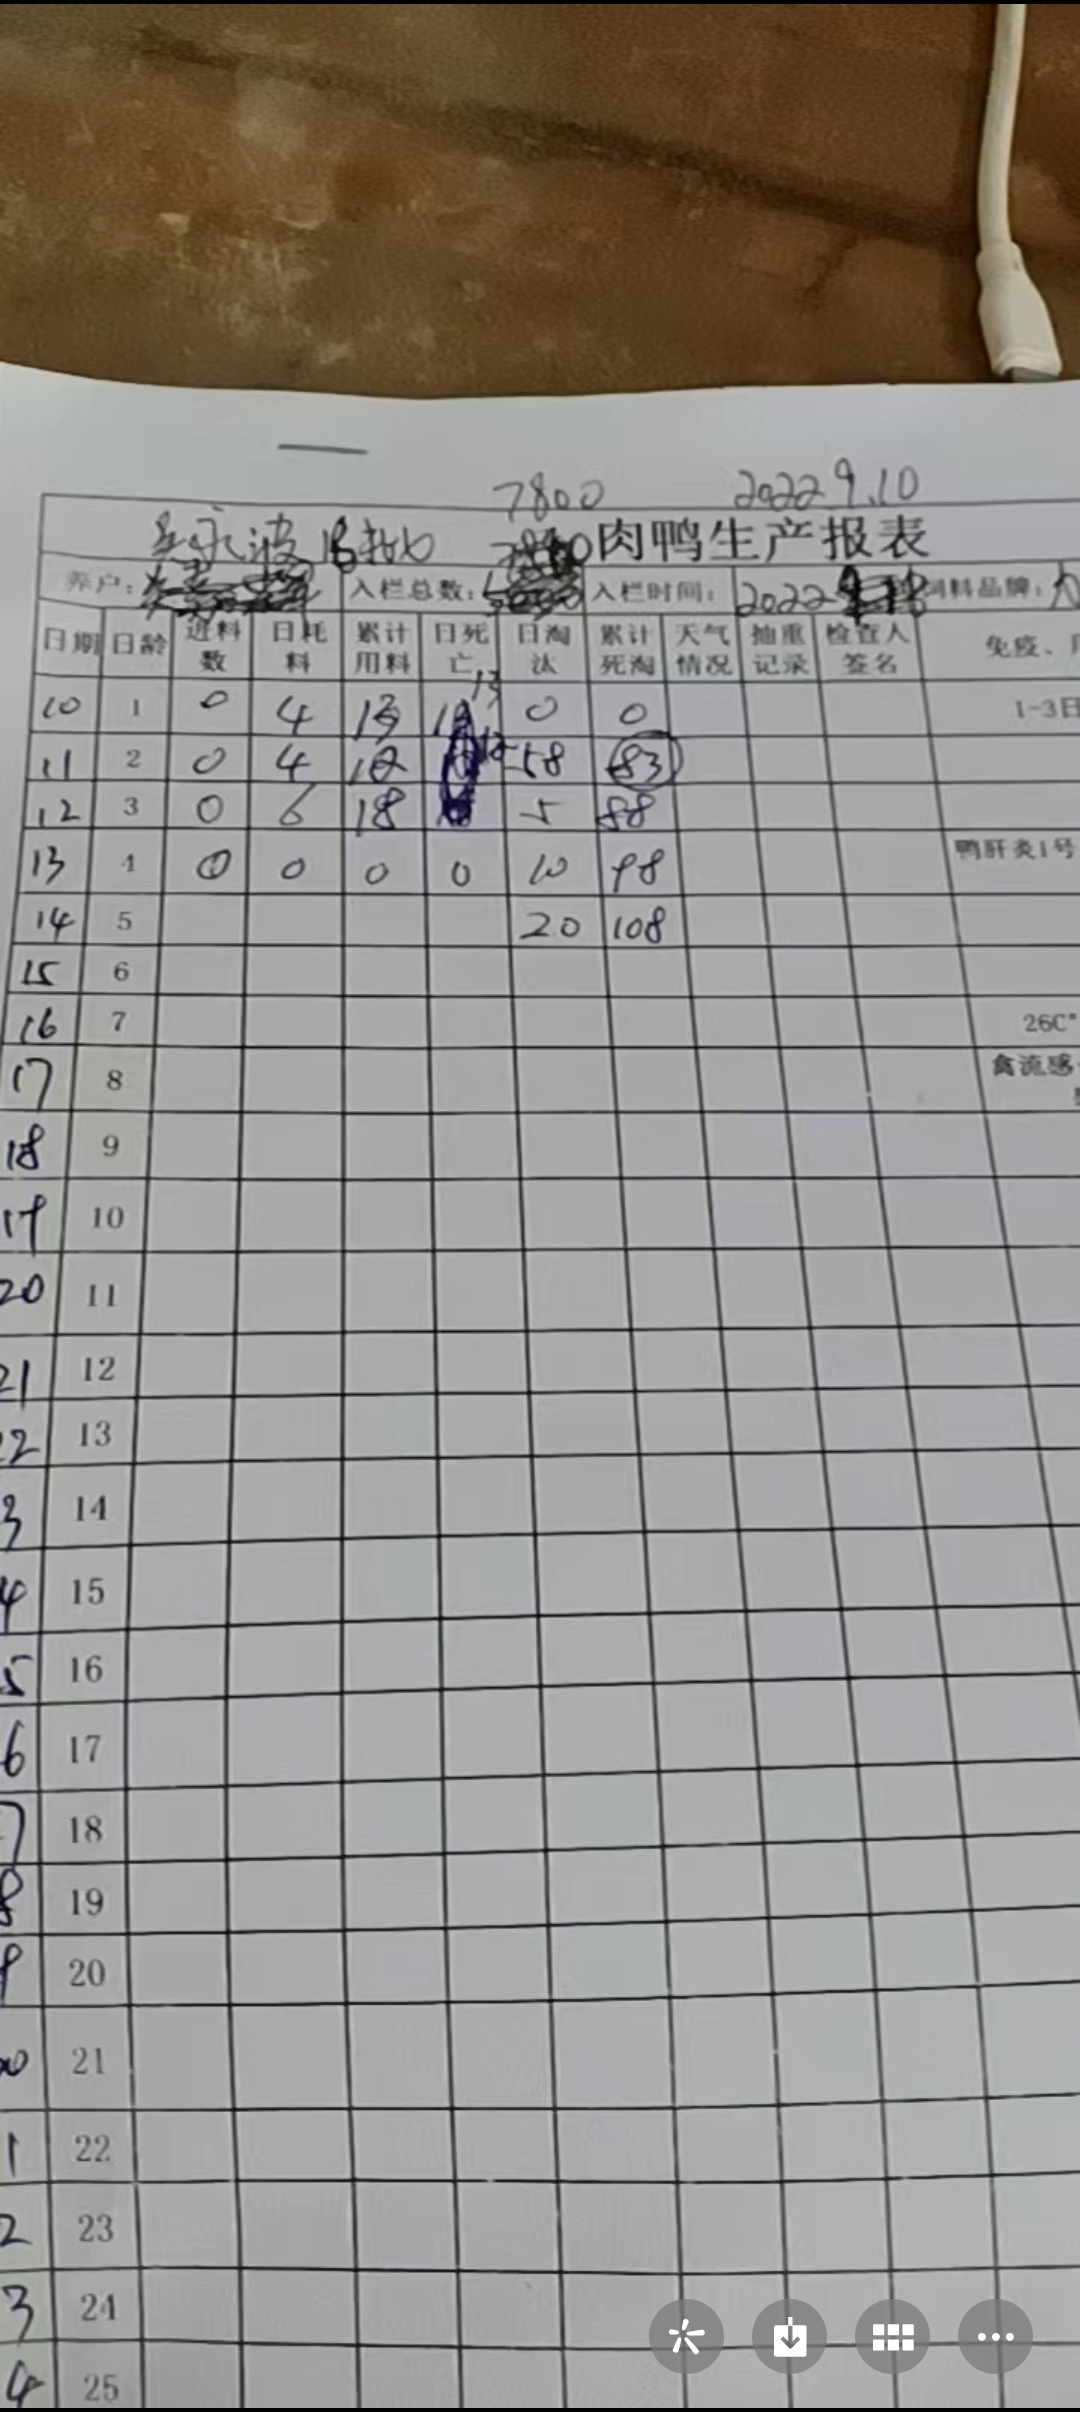 7800 2022 9.10
永波 批 肉鸭生产报表
养户: 入栏总数: 入栏时间: 2022 饲料品牌:
日期 日龄 进料数 日耗料 累计用料 日死亡 日淘汰 累计死淘 天气情况 抽重记录 检查人签名 免疫、
10 1 0 4 13 13 0 0 1-3日
11 2 0 4 12 58 83
12 3 0 6 18 5 88
13 4 0 0 0 0 10 98 鸭肝炎1号
14 5 20 108
15 6
16 7 26C°
17 8 禽流感
18 9
19 10
20 11
21 12
22 13
3 14
4 15
5 16
6 17
7 18
8 19
9 20
21
1 22
2 23
3 24
4 25